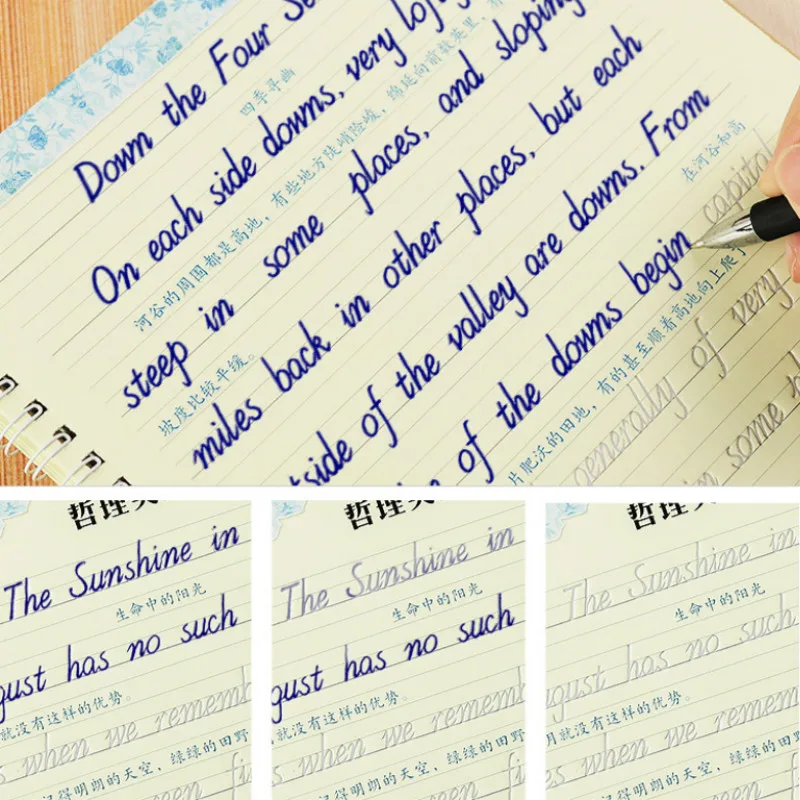 Down the Four Se
四季寻幽
On each side downs, very lof
河谷的周围都是高地，有些地方陡峭险峻，绵延向前数英里，
steep in some places, and sloping
坡度比较平缓。
miles back in other places, but each
tside of the valley are downs. From
在河谷和高
of the downs begin capital
片肥沃的田地，有的甚至顺着高地向上爬
generally of very
in some
哲理
The Sunshine in
生命中的阳光
gust has no such
就没有这样的优势。
s when we rememb
记得明朗的天空，绿绿的田野
哲理
The Sunshine in
生命中的阳光
gust has no such
月就没有这样的优势。
s when we rememb
记得明朗的天空，绿绿的田野
哲理
The Sunshine in
生命中的阳光
ugust has no such
月就没有这样的优势。
s when we rememb
记得明朗的天空，绿绿的田野